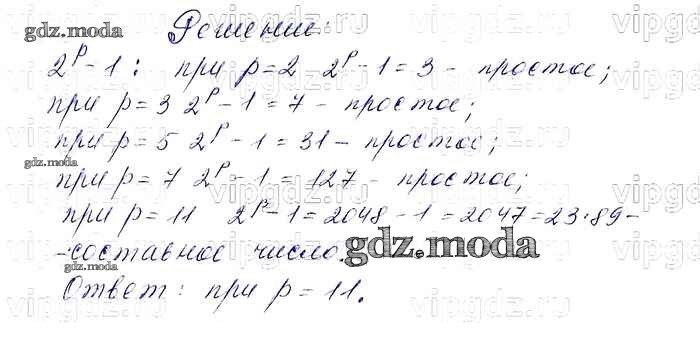 Решение:
2^p - 1 : при p = 2 2^p - 1 = 3 - простое;
при p = 3 2^p - 1 = 7 - простое;
при p = 5 2^p - 1 = 31 - простое;
при p = 7 2^p - 1 = 127 - простое;
при p = 11 2^p - 1 = 2048 - 1 = 2047 = 23·89 -
- составное число.
Ответ: при p = 11.
gdz.moda
gdz.moda
gdz.moda
vipgdz.ru